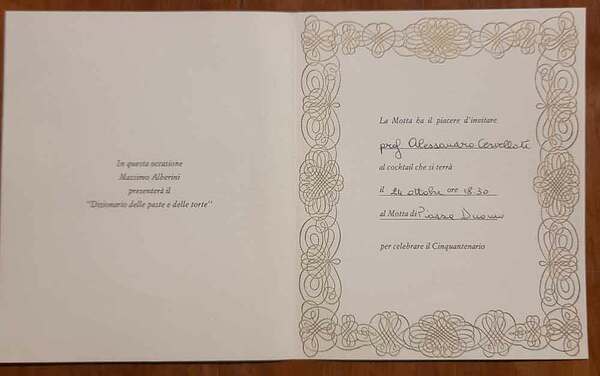 In questa occasione
Massimo Alberini
presenterà il
"Dizionario delle paste e delle torte"
La Motta ha il piacere d'invitare
prof Alessandro Cervellati
al cocktail che si terrà
il 24 ottobre ore 18.30
al Motta di Piazza Duomo
per celebrare il Cinquantenario